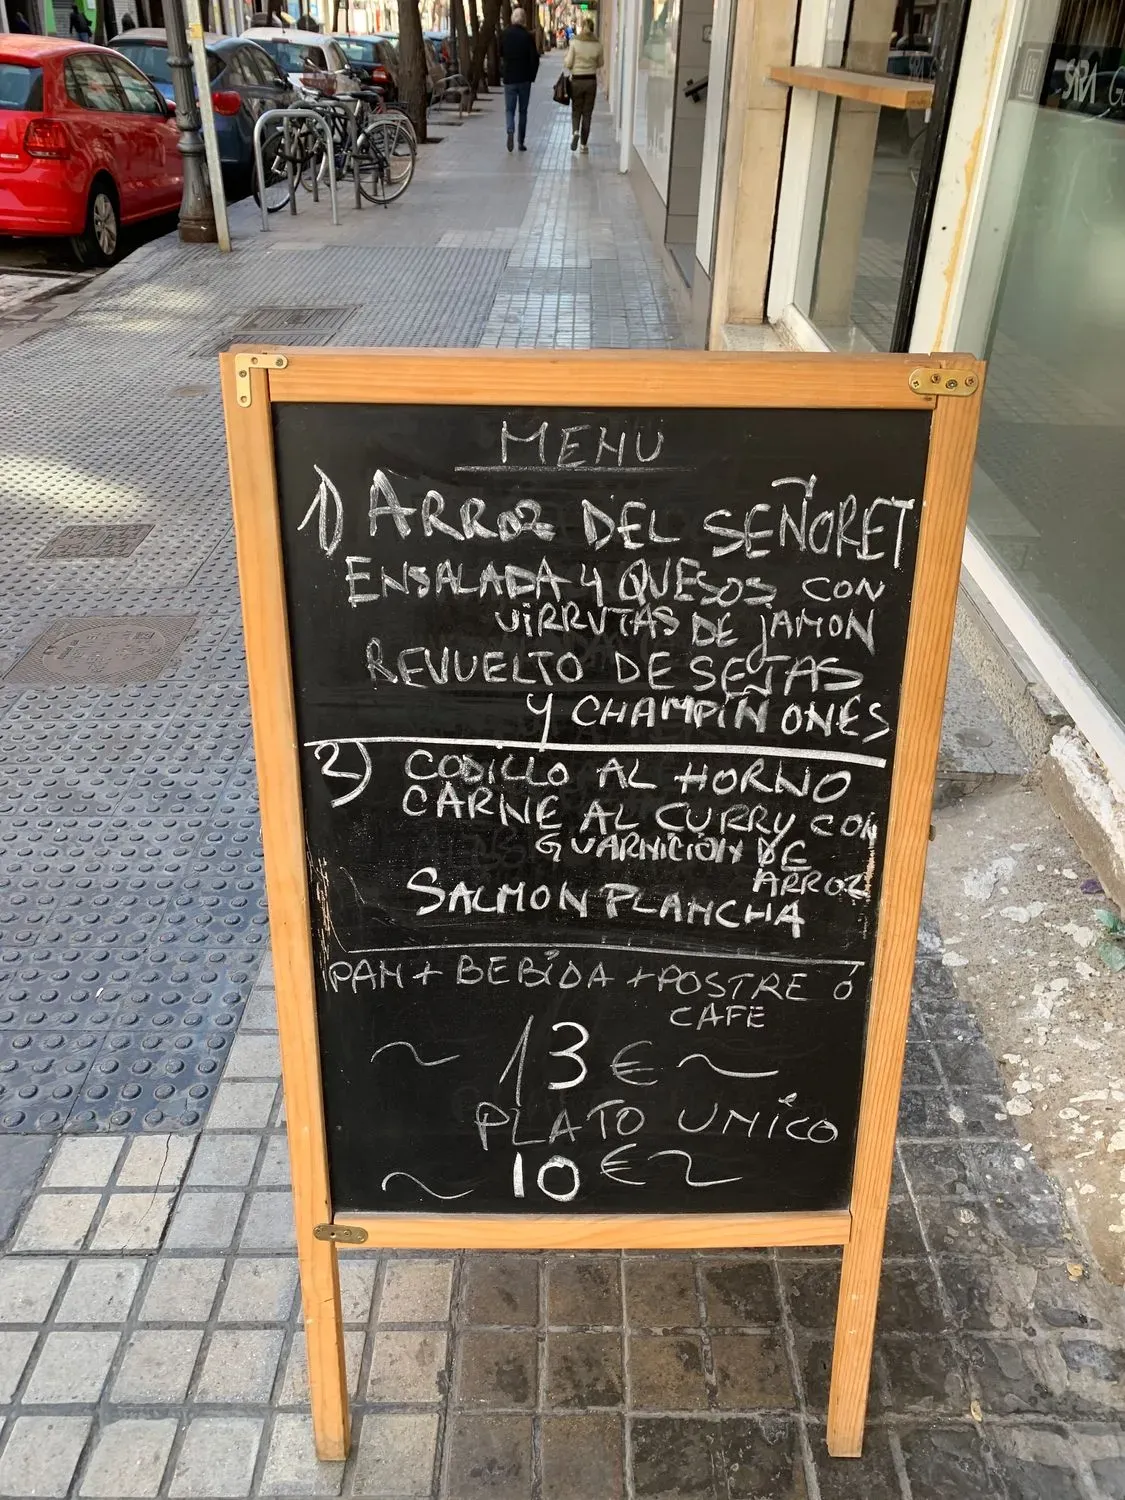 MENU
1) ARROZ DEL SEÑORET
ENSALADA 4 QUESOS CON
VIRRUTAS DE JAMON
REVUELTO DE SETAS
Y CHAMPIÑONES
2) CODILLO AL HORNO
CARNE AL CURRY CON
GUARNICION DE
ARROZ
SALMON PLANCHA
PAN + BEBIDA + POSTRE Ó
CAFE
~ 13 € ~
PLATO UNICO
~ 10 € ~